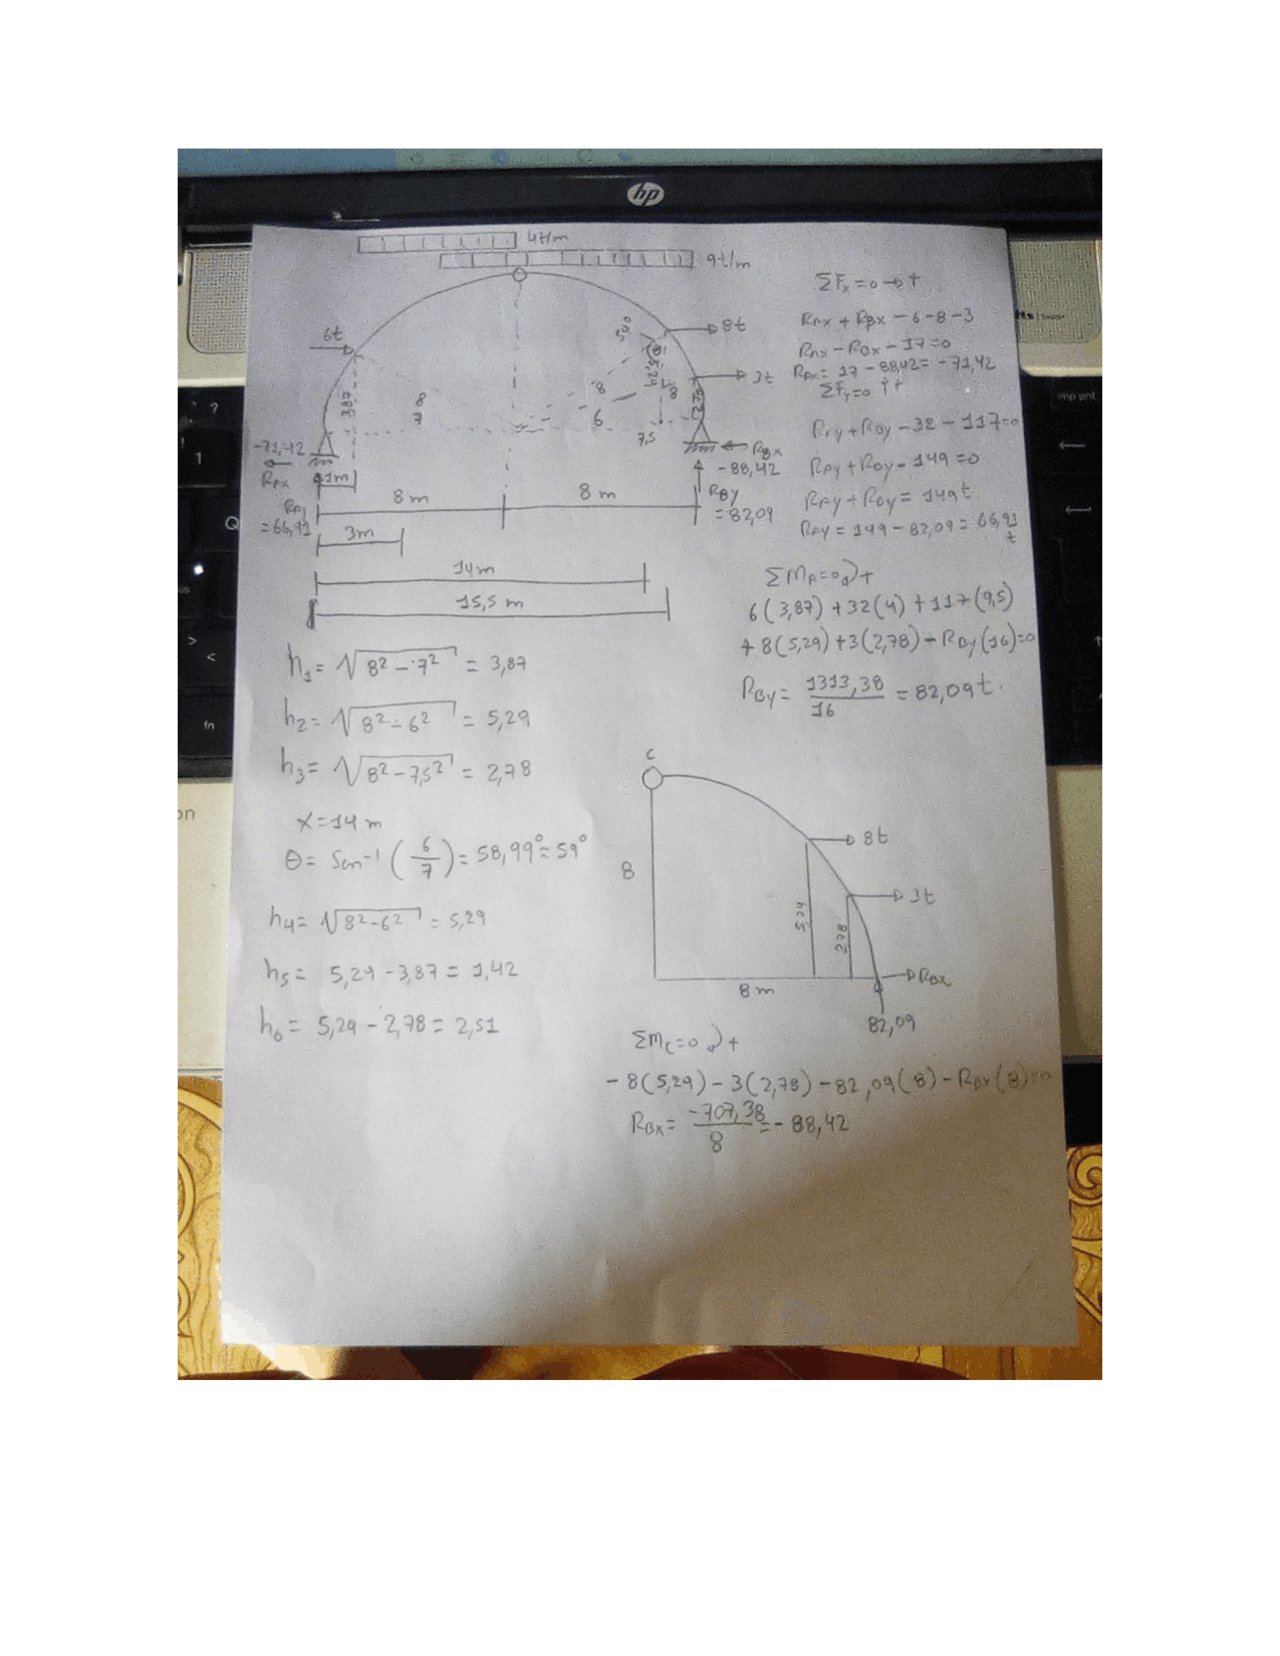 hp
4t/m
9t/m
6t
8t
3t
3,87
8
7
8
6
8
5,29
7,5
-71,42
RAx
1m
8 m
8 m
RAy
= 66,91
3m
14 m
15,5 m
RBx
- 88,42
RBy
= 82,09
ΣFx = 0 → +
RAx + RBx - 6 - 8 - 3
RAx - RBx - 17 = 0
RAx = 17 - 88,42 = - 71,42
ΣFy = 0 ↑ +
RAy + RBy - 32 - 117 = 0
RAy + RBy - 149 = 0
RAy + RBy = 149 t
RAy = 149 - 82,09 = 66,91
t
ΣMA = 0 ↻ +
6 (3,87) + 32 (4) + 117 (9,5)
+ 8 (5,29) + 3 (2,78) - RBy (16) = 0
RBy = 1313,38 / 16 = 82,09 t.
h1 = √8² - 7² = 3,87
h2 = √8² - 6² = 5,29
h3 = √8² - 7,5² = 2,78
X = 14 m
θ = Sen⁻¹ ( 6 / 7 ) = 58,99° = 59°
h4 = √8² - 6² = 5,29
h5 = 5,29 - 3,87 = 1,42
h6 = 5,29 - 2,78 = 2,51
C
8t
3t
8
5,29
2,78
RBx
8 m
82,09
ΣMC = 0 ↻ +
- 8 (5,29) - 3 (2,78) - 82,09 (8) - RBx (8) = 0
RBx = -707,38 / 8 = - 88,42
imp pnt
Q
?
1
>
<
fn